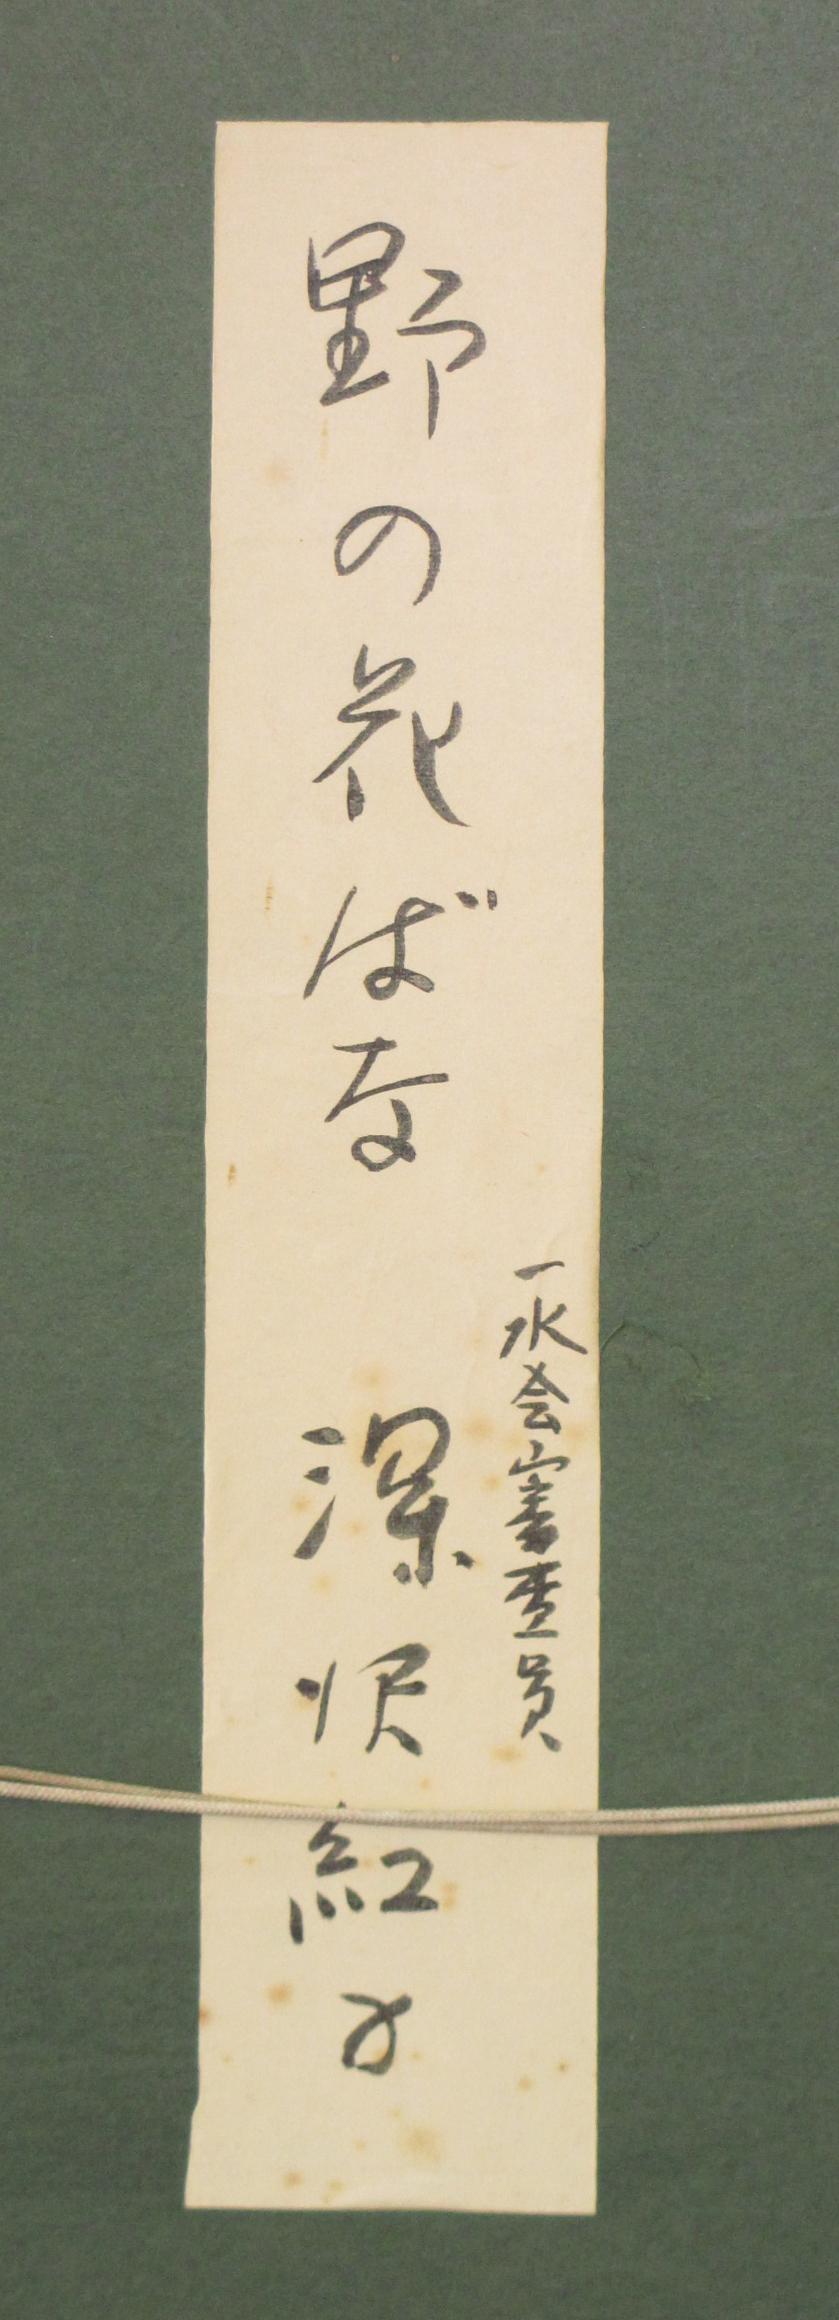 野の花ばな
一水会審査員
深沢紅子